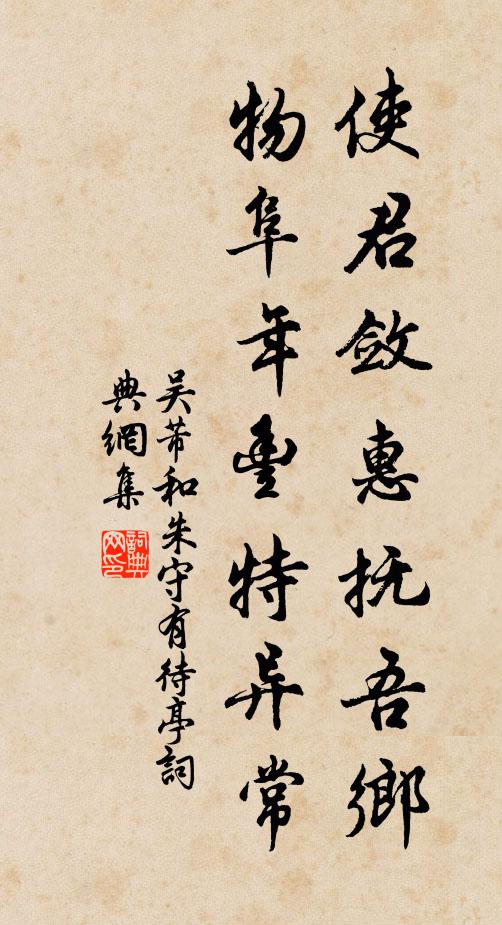 使君敛惠抚吾鄉
物阜年豐特异常
吴芾和朱守有待亭詞
典網集
詞典网印